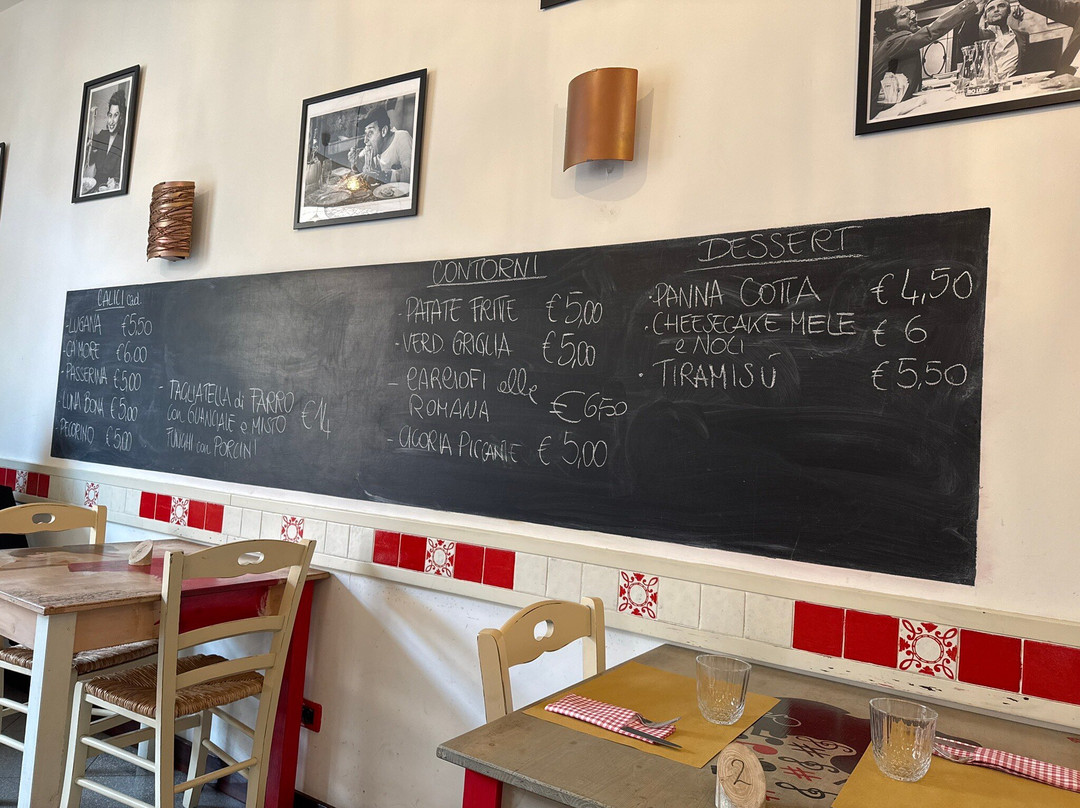 CALICI
-LUGANA €5,50
-CA' MORE €6,00
-PASSERINA €5,00
-LUNA BONA €5,00
-PECORINO €5,00
- TAGLIATELLA di FARRO
con GUANCIALE e MISTO €14
FUNGHI con PORCINI
CONTORNI
-PATATE FRITTE €5,00
-VERD. GRIGLIA €5,00
- CARCIOFI alla
ROMANA €6,50
- CICORIA PICCANTE €5,00
DESSERT
·PANNA COTTA €4,50
·CHEESECAKE MELE €6
e NOCI
·TIRAMISÚ €5,50
2